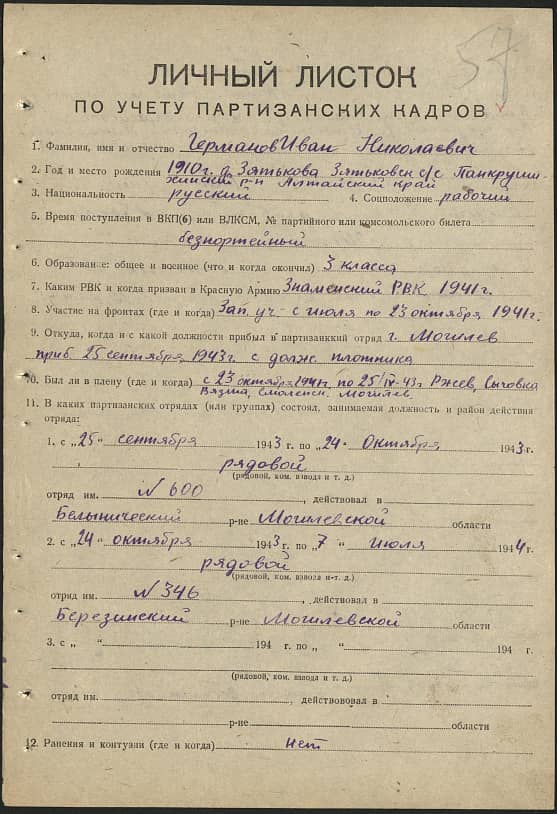 57
ЛИЧНЫЙ ЛИСТОК
ПО УЧЕТУ ПАРТИЗАНСКИХ КАДРОВ
1. Фамилия, имя и отчество Германов Иван Николаевич
2. Год и место рождения 1910 г. д. Зятькова Зятьковск с/с Панкруши-
хинский р-н Алтайский край
3. Национальность русский 4. Соцположение рабочий
5. Время поступления в ВКП(б) или ВЛКСМ, № партийного или комсомольского билета
безпортейный
6. Образование: общее и военное (что и когда окончил) 3 класса
7. Каким РВК и когда призван в Красную Армию Знаменский РВК 1941 г.
8. Участие на фронтах (где и когда) Зап. уч. с июля по 23 октября 1941 г.
9. Откуда, когда и с какой должности прибыл в партизанский отряд г. Могилев
приб 25 сентября 1943 г. с долж плотника
10. Был ли в плену (где и когда) с 23 октября 1941 г. по 25/IX-43 г. Ржев, Сычовка
Вязма, Смоленск. Могилев
11. В каких партизанских отрядах (или группах) состоял, занимаемая должность и район действия
отряда:
1. с „25" сентября 1943 г. по „24" Октября 1943 г.
рядовой
(рядовой, ком. взвода и т. д.)
отряд им. N 600, действовал в
Белыничский р-не Могилевской области
2. с „24" октября 1943 г. по „7" июля 1944 г.
рядовой
(рядовой, ком. взвода и т. д.)
отряд им. N 346, действовал в
Березинский р-не Могилевской области
3. с „ " 194 г. по „ " 194 г.
(рядовой, ком. взвода и т. д.)
отряд им., действововал в
р-не области
12. Ранения и контузии (где и когда) нет